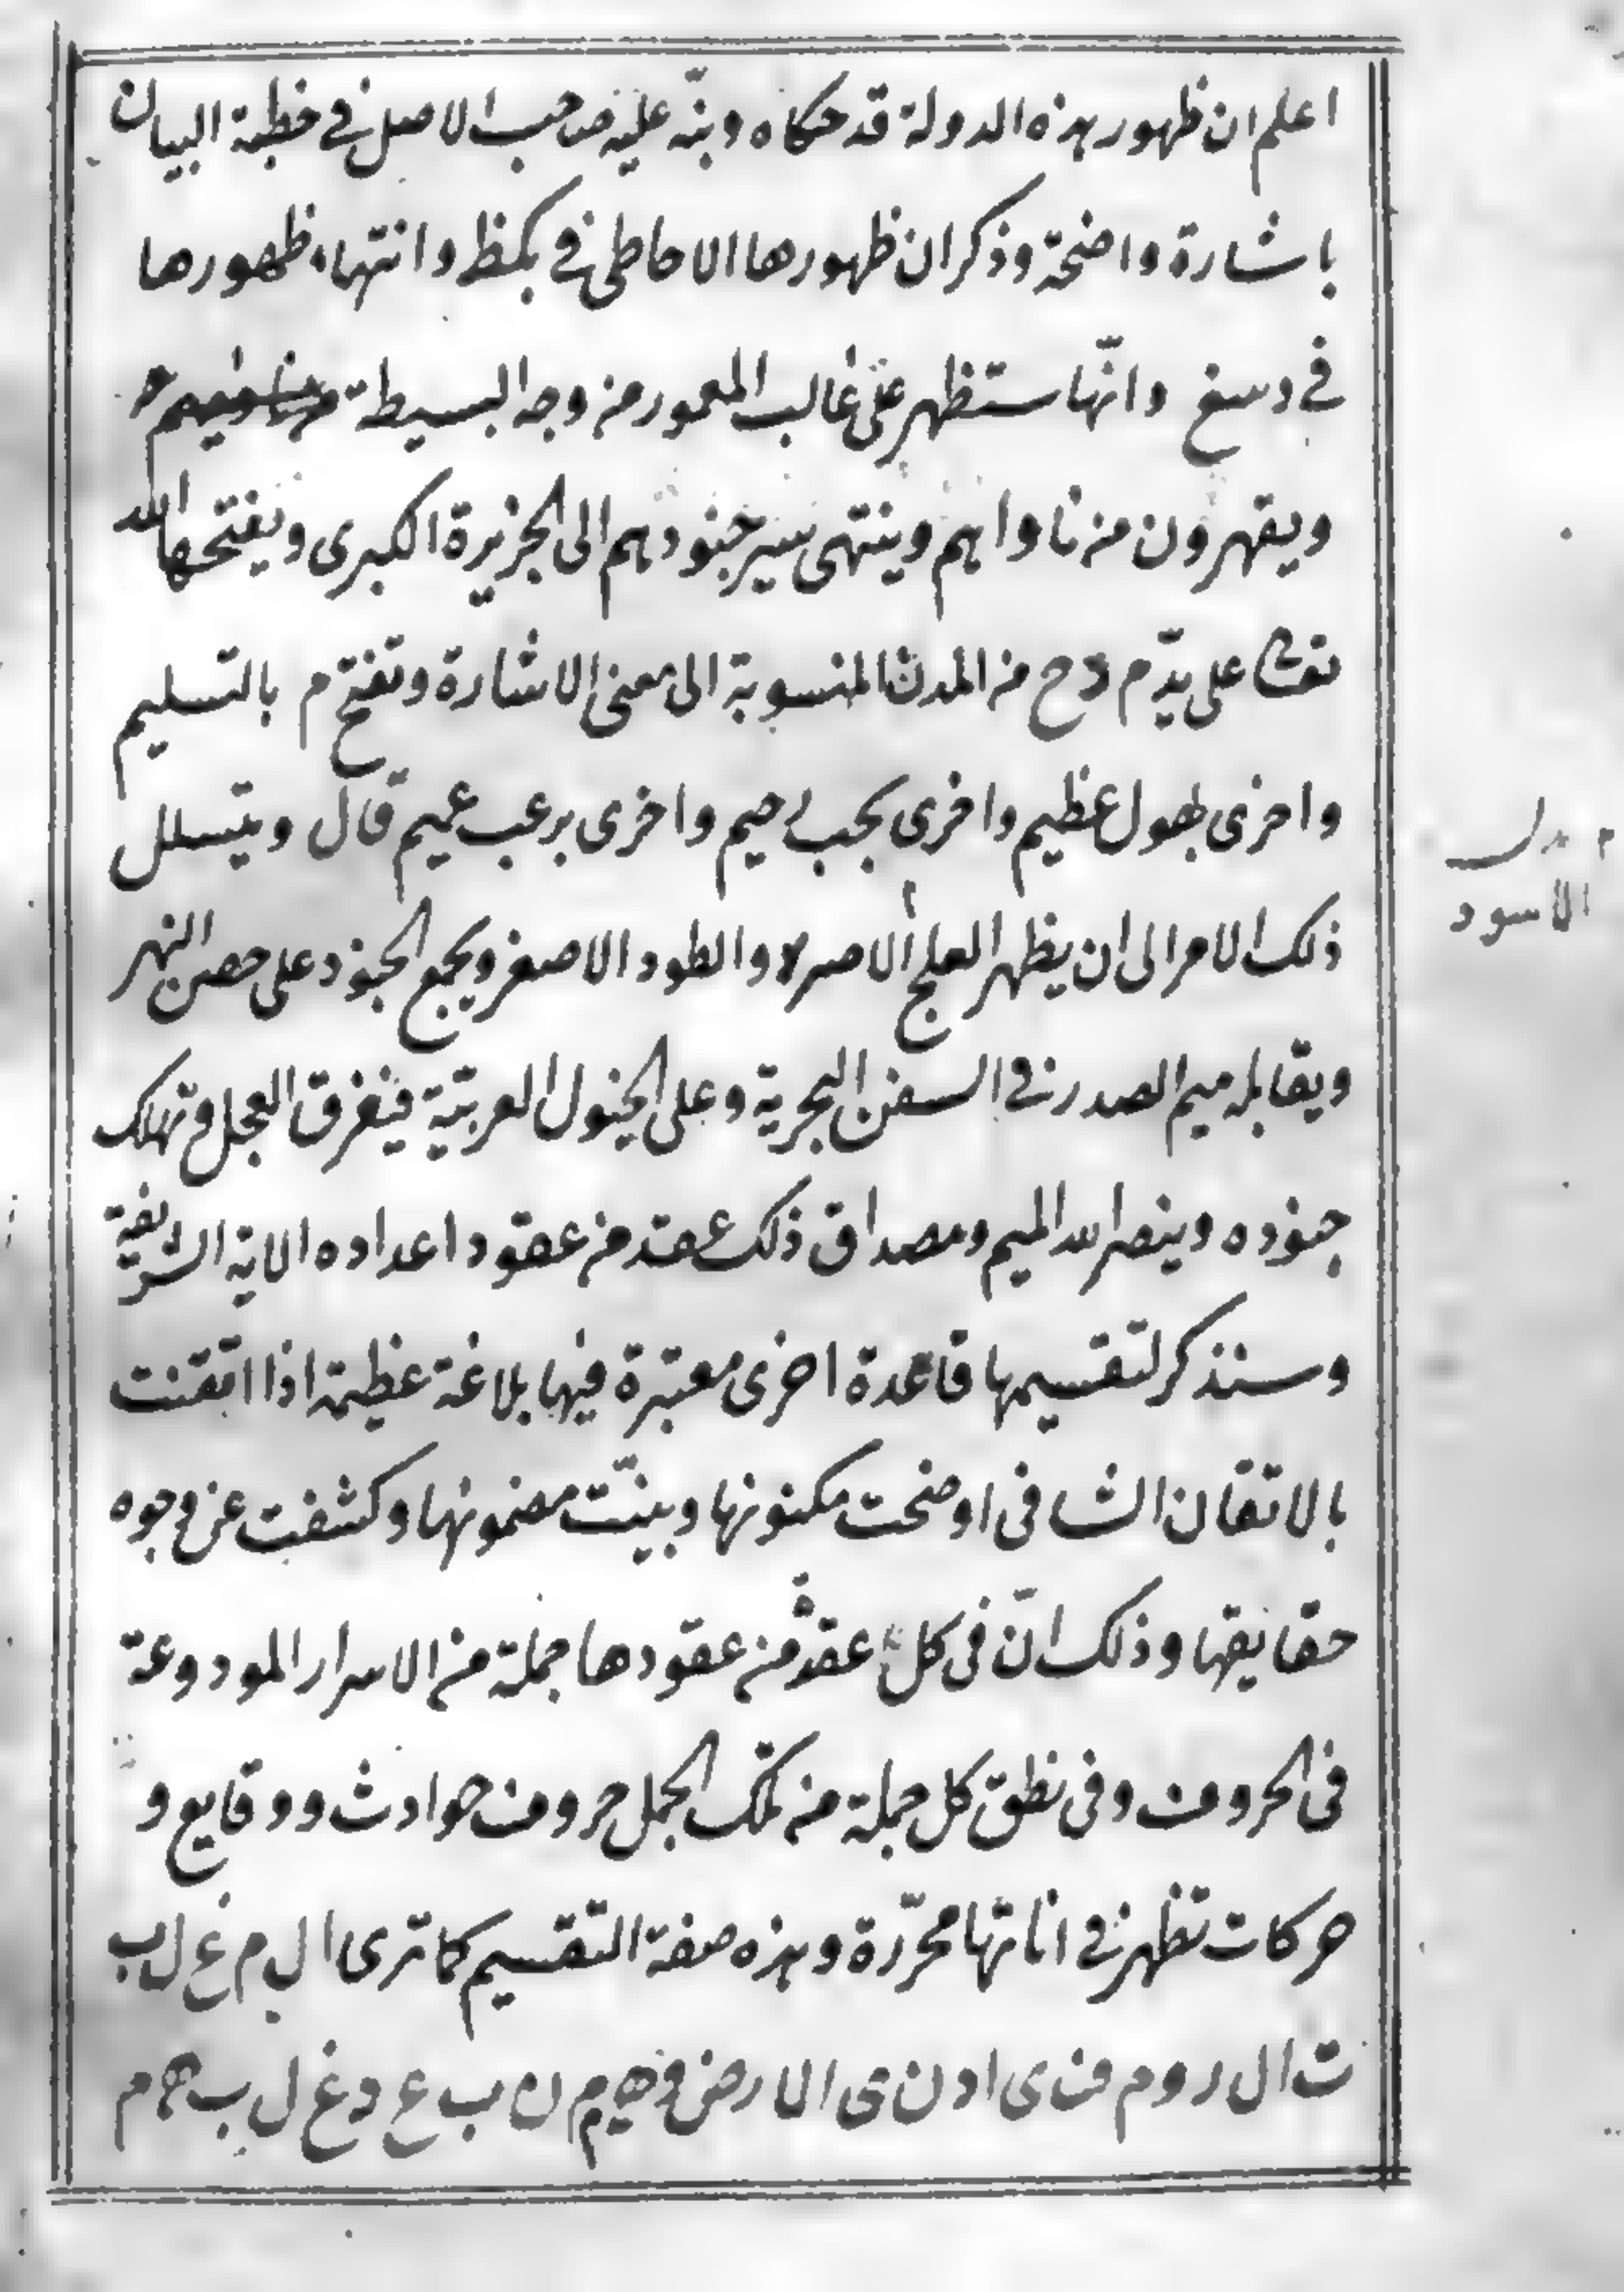 اعلم ان ظهور هذه الدولة قد حكاه ونبّه عليه صاحب الاصل في خطبة البيان
باشارة واضحة وذكر ان ظهورها الاحاطى في بكمظ وانتهاء ظهورها
في دسغ وانّها ستظهر على غالب المعمور من وجه البسيطة
ويقهرون من ناواهم وينتهى سير جنودهم الى الجزيرة الكبرى ويفتحها الله
تعالى على يد م دح من المدن المنسوبة الى معنى الاشارة وتفتح م بالتسليم
واخرى بهول عظيم واخرى بحب رحيم واخرى برعب عميم قال ويتسلل
ذلك الامر الى ان يظهر العلج والطود الاصغر ويجمع الجنود على حصن النهر
ويقابله ميم الصدر في السفن البحرية وعلى الخيول العربيّة فيغرق العجل وتهلك
جنوده وينصر الله الميم ومصداق ذلك عقد من عقود اعداده الاية الشريفة
وسنذكر لتقسيمها قاعدة اخرى معتبرة فيها بلاغة عظيمة اذا اتقنت
بالاتقان الشافى اوضحت مكنونها وبيّنت مضمونها وكشفت عن وجوه
حقايقها وذلك انّ فى كل عقد من عقودها جملة من الاسرار المودوعة
فى الحروف وفى نطق كل جملة من تلك الجمل حروف حوادث ووقايع و
حركات تظهر في اناتها محرّرة وهذه صفة التقسيم كما ترى ا ل م غ ل ب
ت ا ل ر و م ف ى ا د ن ى ا ل ا ر ض و ه م م ن ب ع د غ ل ب ه م
م بدل
الاسود